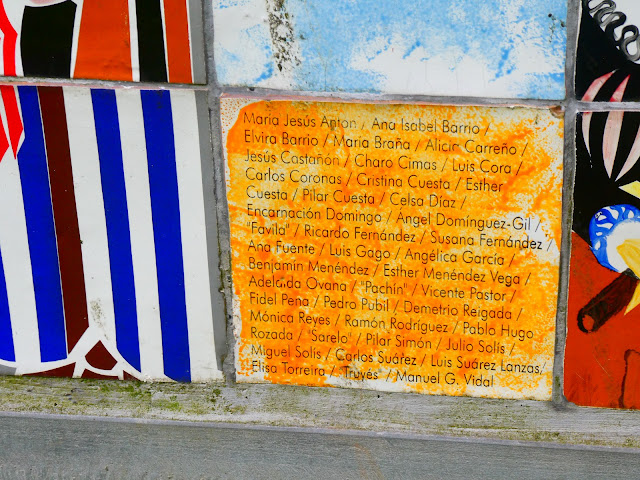 Maria Jesús Anton / Ana Isabel Barrio /
Elvira Barrio / Maria Braña / Alicia Carreño /
Jesús Castañón / Charo Cimas / Luis Cora /
Carlos Coronas / Cristina Cuesta / Esther
Cuesta / Pilar Cuesta / Celsa Díaz /
Encarnación Domingo / Angel Domínguez-Gil /
"Favila" / Ricardo Fernández / Susana Fernández /
Ana Fuente / Luis Gago / Angélica García /
Benjamín Menéndez / Esther Menéndez Vega /
Adelaida Ovana / "Pachín" / Vicente Pastor /
Fidel Pena / Pedro Pubil / Demetrio Reigada /
Mónica Reyes / Ramón Rodríguez / Pablo Hugo
Rozada / "Sarelo" / Pilar Simón / Julio Solís /
Miguel Solís / Carlos Suárez / Luis Suárez Lanzas /
Elisa Torreira / "Truyés" / Manuel G. Vidal